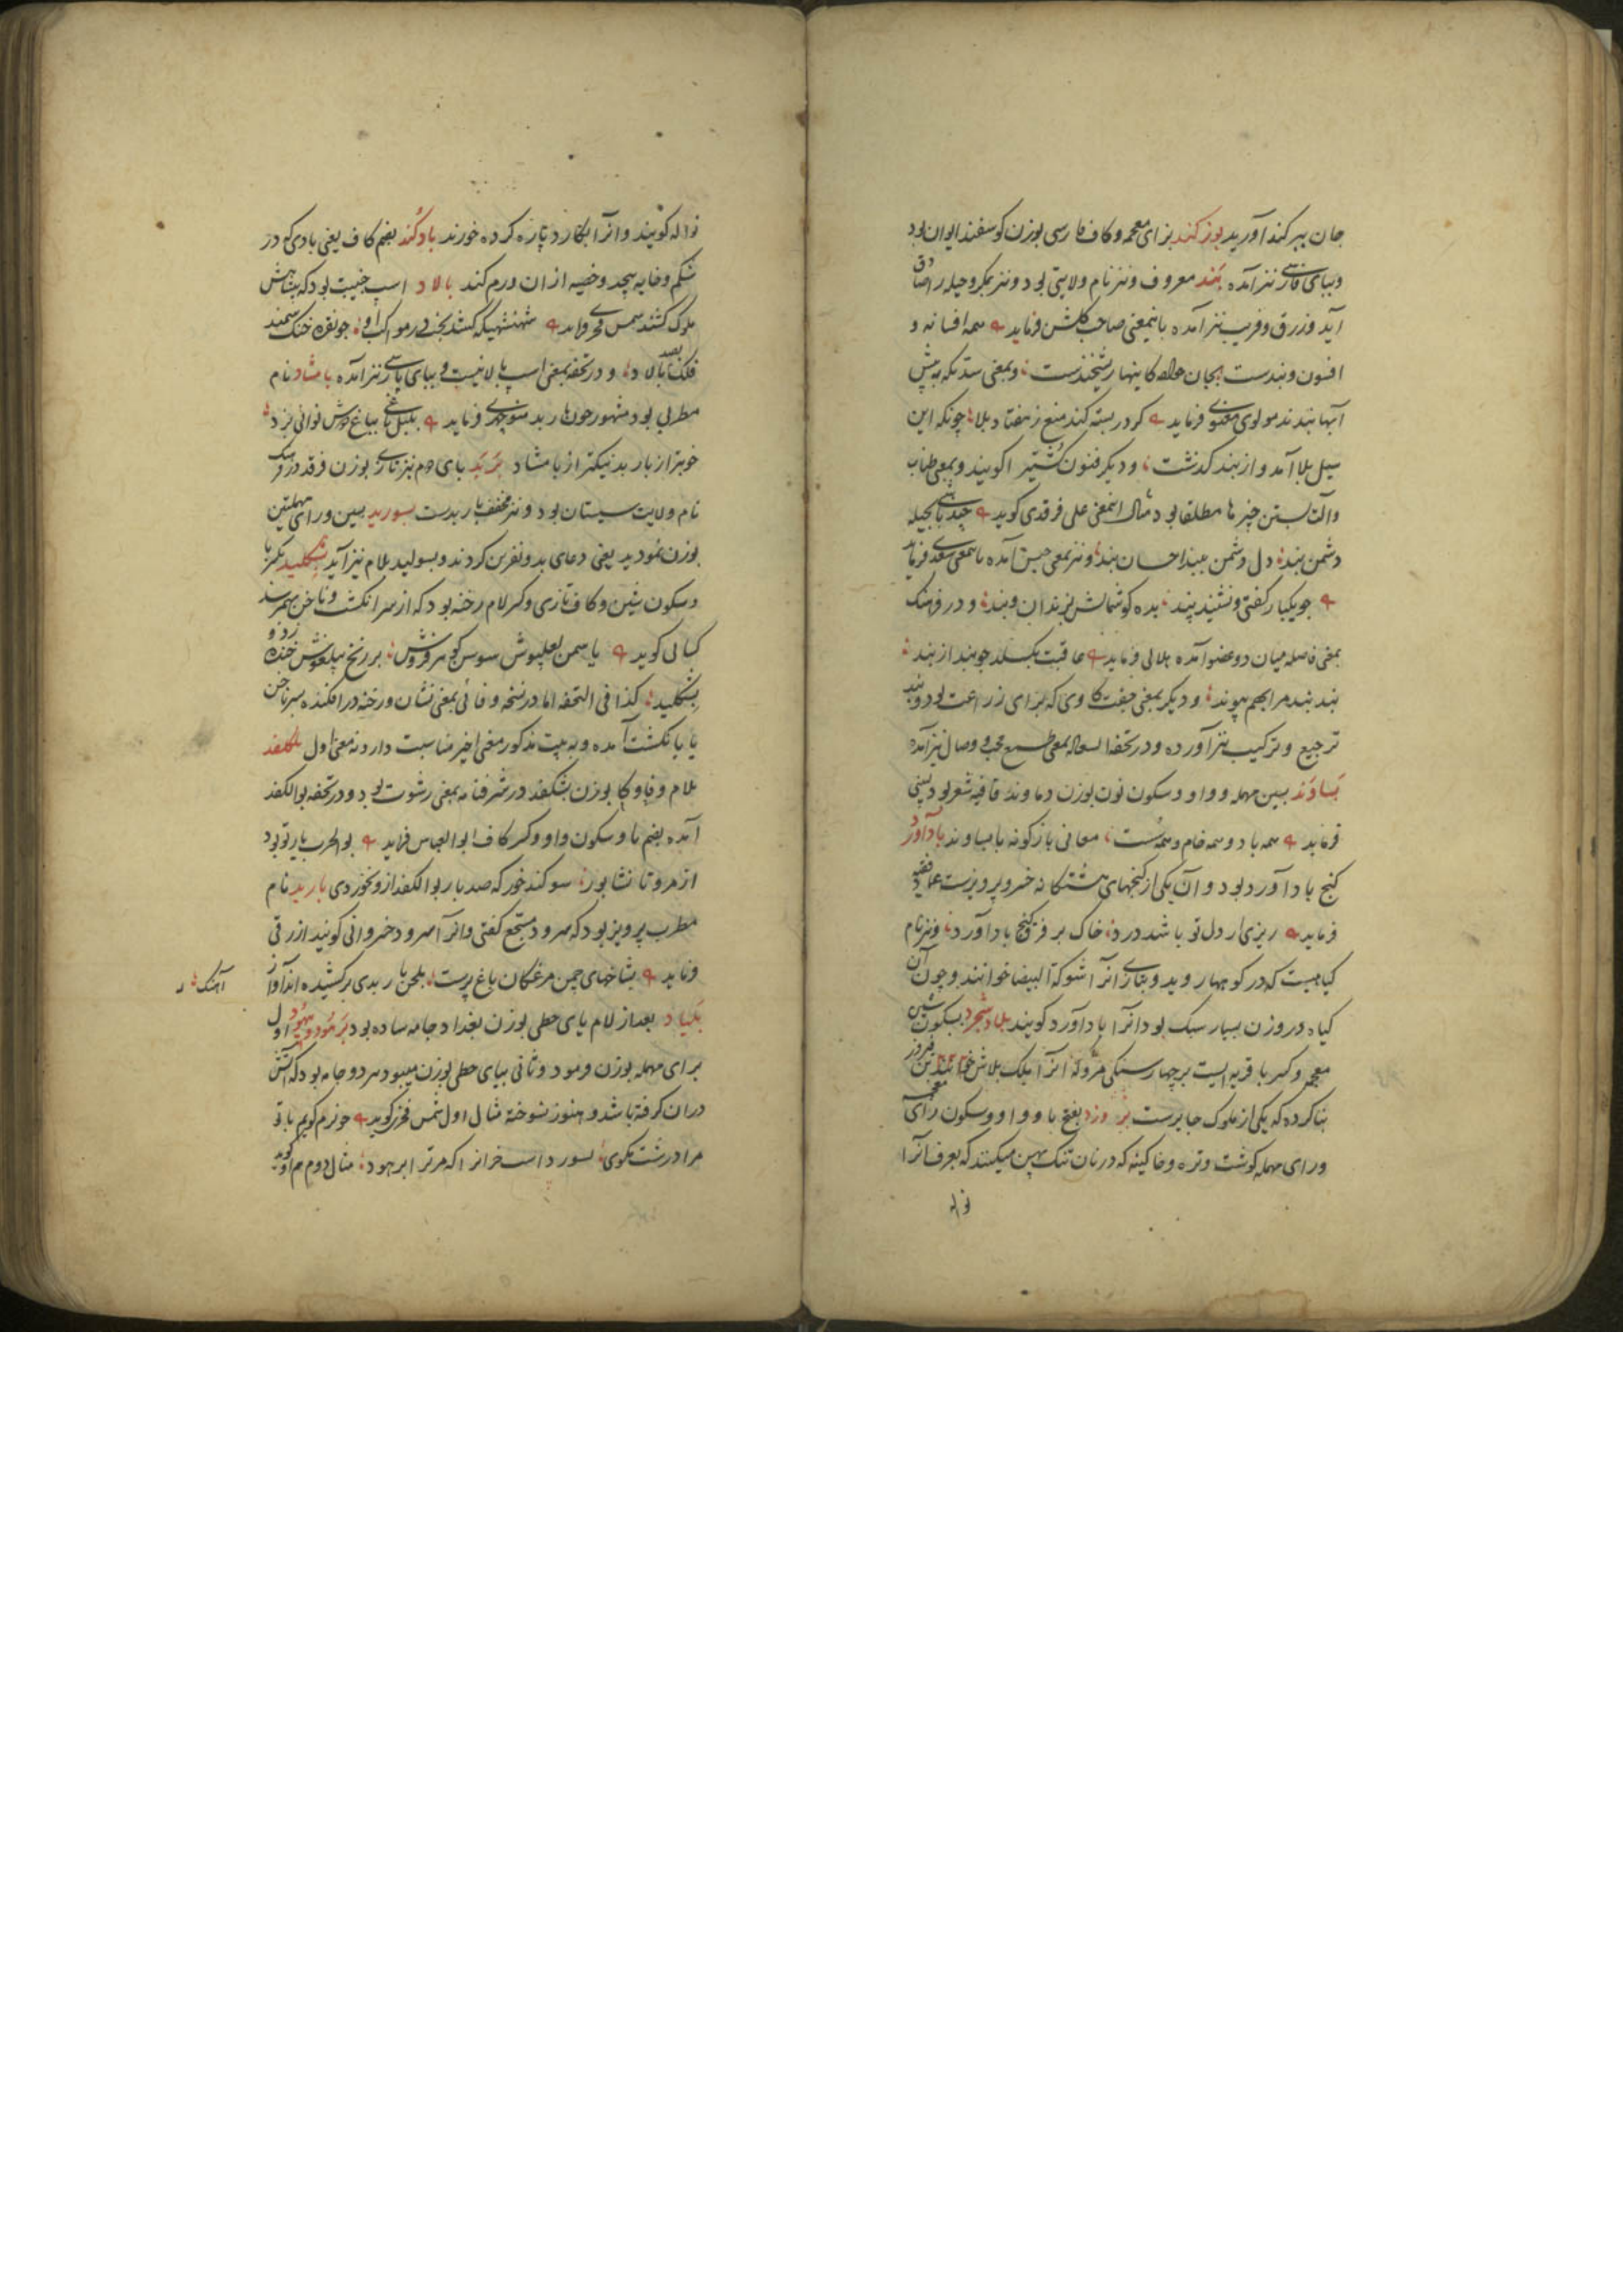 جان ببر کند آورید بوزکند بزای معجمه و کاف فارسی بوزن گوسفند ایوان بود
و ببای فارسی نیز آمده بند معروف و نیز نام ولایتی بود و نیز بمکر و حیله
آید و زرق و فریب نیز آمده باینمعنی صاحب گلشن فرماید همه افسانه و
افسون و بندست بجان خواجه کاینها ریشخندست و بمعنی سد که به پیش
آبها بندند مولوی معنوی فرماید کر در بسته کند منع ز هفتاد بلا چونکه این
سیل بلا آمد و از بند گذشت و دیگر فنون کشتی را گویند و بمعنی طناب
و آلت بستن چیزها مطلقا بود مثال اینمعنی علی فرقدی گوید
دشمن بند دل دشمن ببند احسان بند و نیز بمعنی حبس آمده بامعنی سعدی فرماید
چو یکبار گفتی و نشنید پند بده گوشمالش بزندان و بند و در فرهنگ
بمعنی فاصله میان دو عضو آمده هلالی فرماید عاقبت بگسلد چو بند از بند
بند بند مرا بهم پیوند و دیگر بمعنی جفت گاوی که برای زراعت بود و بند
ترجیع و ترکیب نیز آورده و در تحفة السعاده بمعنی طمع و وصال نیز آمده
بساوند بسین مهمله و واو و سکون نون بوزن دماوند قافیه شعر بود لبیبی
فرماید همه باد و همه خام و همه سست معانی باژگونه با بساوند بادآورد
گنج بادآورد بود و آن یکی از گنجهای هشتگانه خسرو پرویزست
فرماید ریزی ار دل تو باشد درد خاک بر فرق گنج بادآورد و نیز نام
گیاهیست که در کوهها روید و بتازی آنرا شوکة البیضا خوانند و چون آن
گیاه در وزن بسیار سبک بود آنرا بادآورد گویند بلادشجرد بسکون شین
معجمه و کسر با قریه ایست بر چهار سنگی مرو که آنرا ملک بلاش بن فیروز
بنا کرده که یکی از ملوک جابرست بزوزد بفتح با و واو و سکون زای معجمه
و رای مهمله گوشت و تره و خاگینه که در نان تنک پهن میکنند که بعرف آنرا
نواله
نواله گویند و آنرا بکارد پاره کرده خورند بادکند بضم کاف یعنی بادی که در
شکم و خایه پیچد و خصیه از ان ورم کند بالاد اسپ جنیبت بود که پیشاپیش
ملوک کشند شمس فخری فرماید شهنشهی که کشد بخت در مواکب او چو نقره خنگ سمند
فلک بالاد و در تحفه بمعنی اسپ بالانیست و ببای پارسی نیز آمده بامشاد نام
مطربی بود مشهور چون باربد منوچهری فرماید بلبل باغی بباغ دوش نوائی بزد
خوبتر از باربد نیکتر از بامشاد بربد
نام ولایت سیستان بود و نیز مخفف باربدست بسورید بسین و رای مهملتین
بوزن نمودید یعنی دعای بد و نفرین کردند و بسولید بلام نیز آید بشکلید بکسر با
و سکون شین و کاف تازی و کسر لام رخنه بود که از سر انگشت و ناخن بهمرسد
کسائی گوید یاسمن لعلپوش سوسن گوهرفروش بر زنخ پیلغوش
بشکلید کذا فی التحفه اما در نسخه وفائی بمعنی نشان و رخنه در افکنده بسر ناخن
یا با نگشت آمده و به بیت مذکور معنی اخیر مناسبت دارد نه معنی اول بلکفد
بلام و فا و کاف بوزن بشکفد در شرفنامه بمعنی رشوت بود و در تحفه بوالکفد
آمده بضم با و سکون واو و کسر کاف ابوالعباس فرماید
از مرو تا نشابور سوکند خور که صد بار بوالکفد ازو نخوردی باربد نام
مطرب پرویز بود که سرود مسجع گفتی و آنرا سرود خسروانی گویند ازرقی
فرماید بشاخهای چمن مرغکان باغ پرست بلحن باربدی برکشیده اند آواز
آهنگ
بلیاد بعد از لام یای حطی بوزن بغداد جامه ساده بود برمود و بیهود اول
برای مهمله بوزن فرمود و ثانی بیای حطی بوزن میبود هر دو جامه بود که آتش
در ان گرفته باشد و هنوز نسوخته مثال اول شمس فخری گوید
مرا درشت مگوی بسوزد مثال دوم هم او گوید